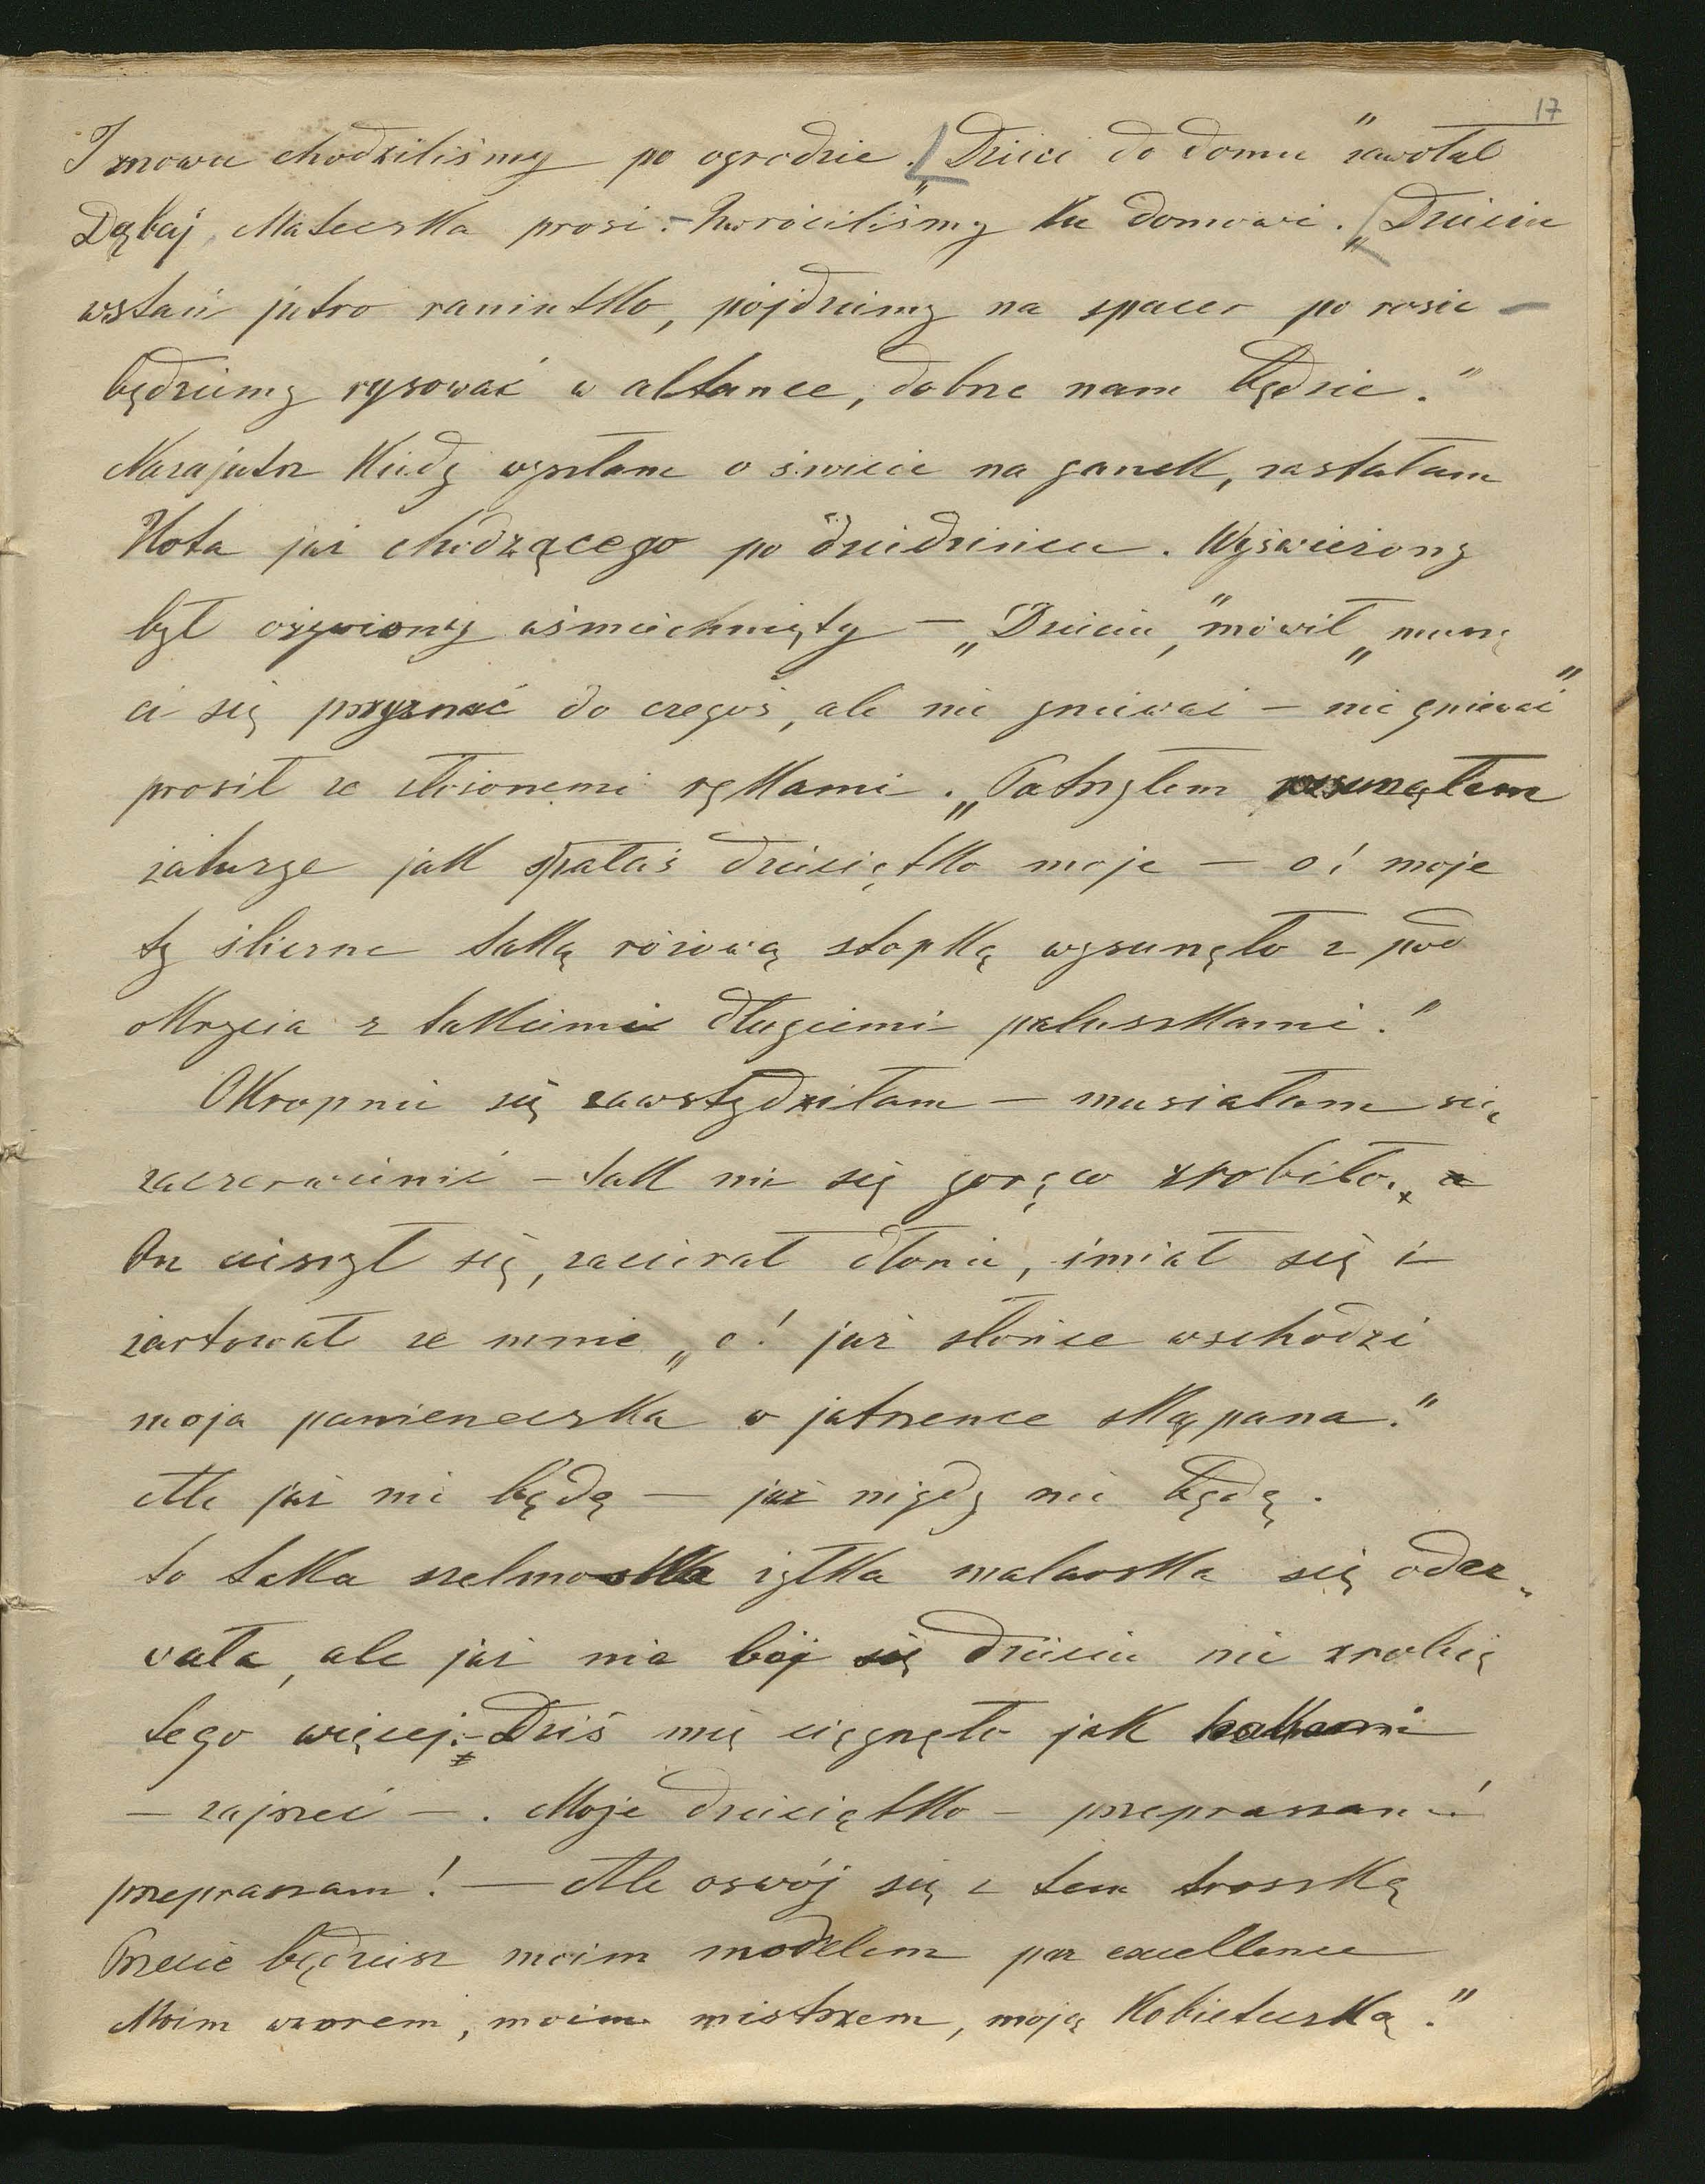 17
I znowu chodziliśmy po ogrodzie. „Dzieci do domu" zawołał
Dębaj, Mateczka prosi. – Zwróciliśmy ku domowi. „Dziecie
wstań jutro raniutko, pójdziemy na spacer po rosie –
będziemy rysować w altance, dobrze nam będzie."
Nazajutrz kiedy wyszłam o świcie na ganek, zastałam
Kota już chodzącego po dziedzińcu. Wyświeżony
był ożywiony uśmiechnięty – „Dziecie," mówił „muszę
ci się przyznać do czegoś, ale nie gniewać – nie gniewać"
prosił ze złożonemi rękami. „Patrzyłem
żaluzye jak spałaś dzieciątko moje – o! moje
ty śliczne taką różową stopkę wysunęło z pod
okrycia z takiemi długiemi paluszkami."
Okropnie się zawstydziłam – musiałam się
zaczerwienić – tak mi się gorąco zrobiło.
On cieszył się, zacierał dłonie, śmiał się i
żartował ze mnie „o! już słońce wschodzi
moja panieneczka w jutrzence skąpana."
Ale już nie będę – już nigdy nie będę.
to taka szelmostka żyłka malarska się odez„
wała, ale już nie bój się dziecie nie zrobię
tego więcej. – Dziś mię ciągnęło jak
– zajrzeć – . Moje dzieciątko – przepraszam!
przepraszam! – Ale oswój się z tem troszkę
Przecie będziesz moim modelem par excellence
Moim wzorem, moim mistrzem, moją kobieteczką."